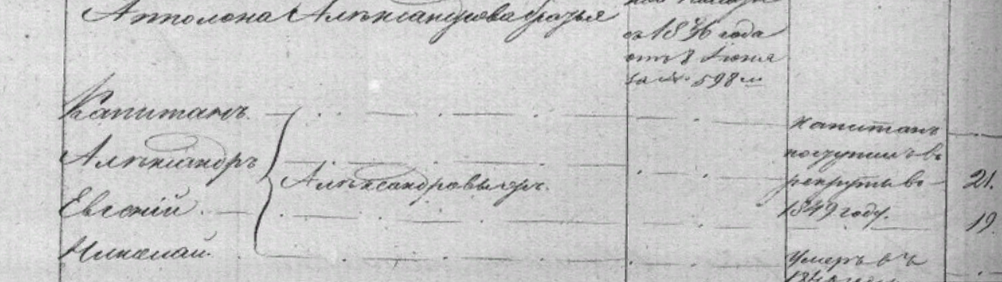 Апполона Александрова братья
съ 1846 года
отъ 8 Июня
за № 598 м
Капитанъ
Александръ
Евгеній
Николай
Александровы
Капитанъ
поступилъ въ
рекруты въ
1849 году.
21.
19.
Умеръ въ